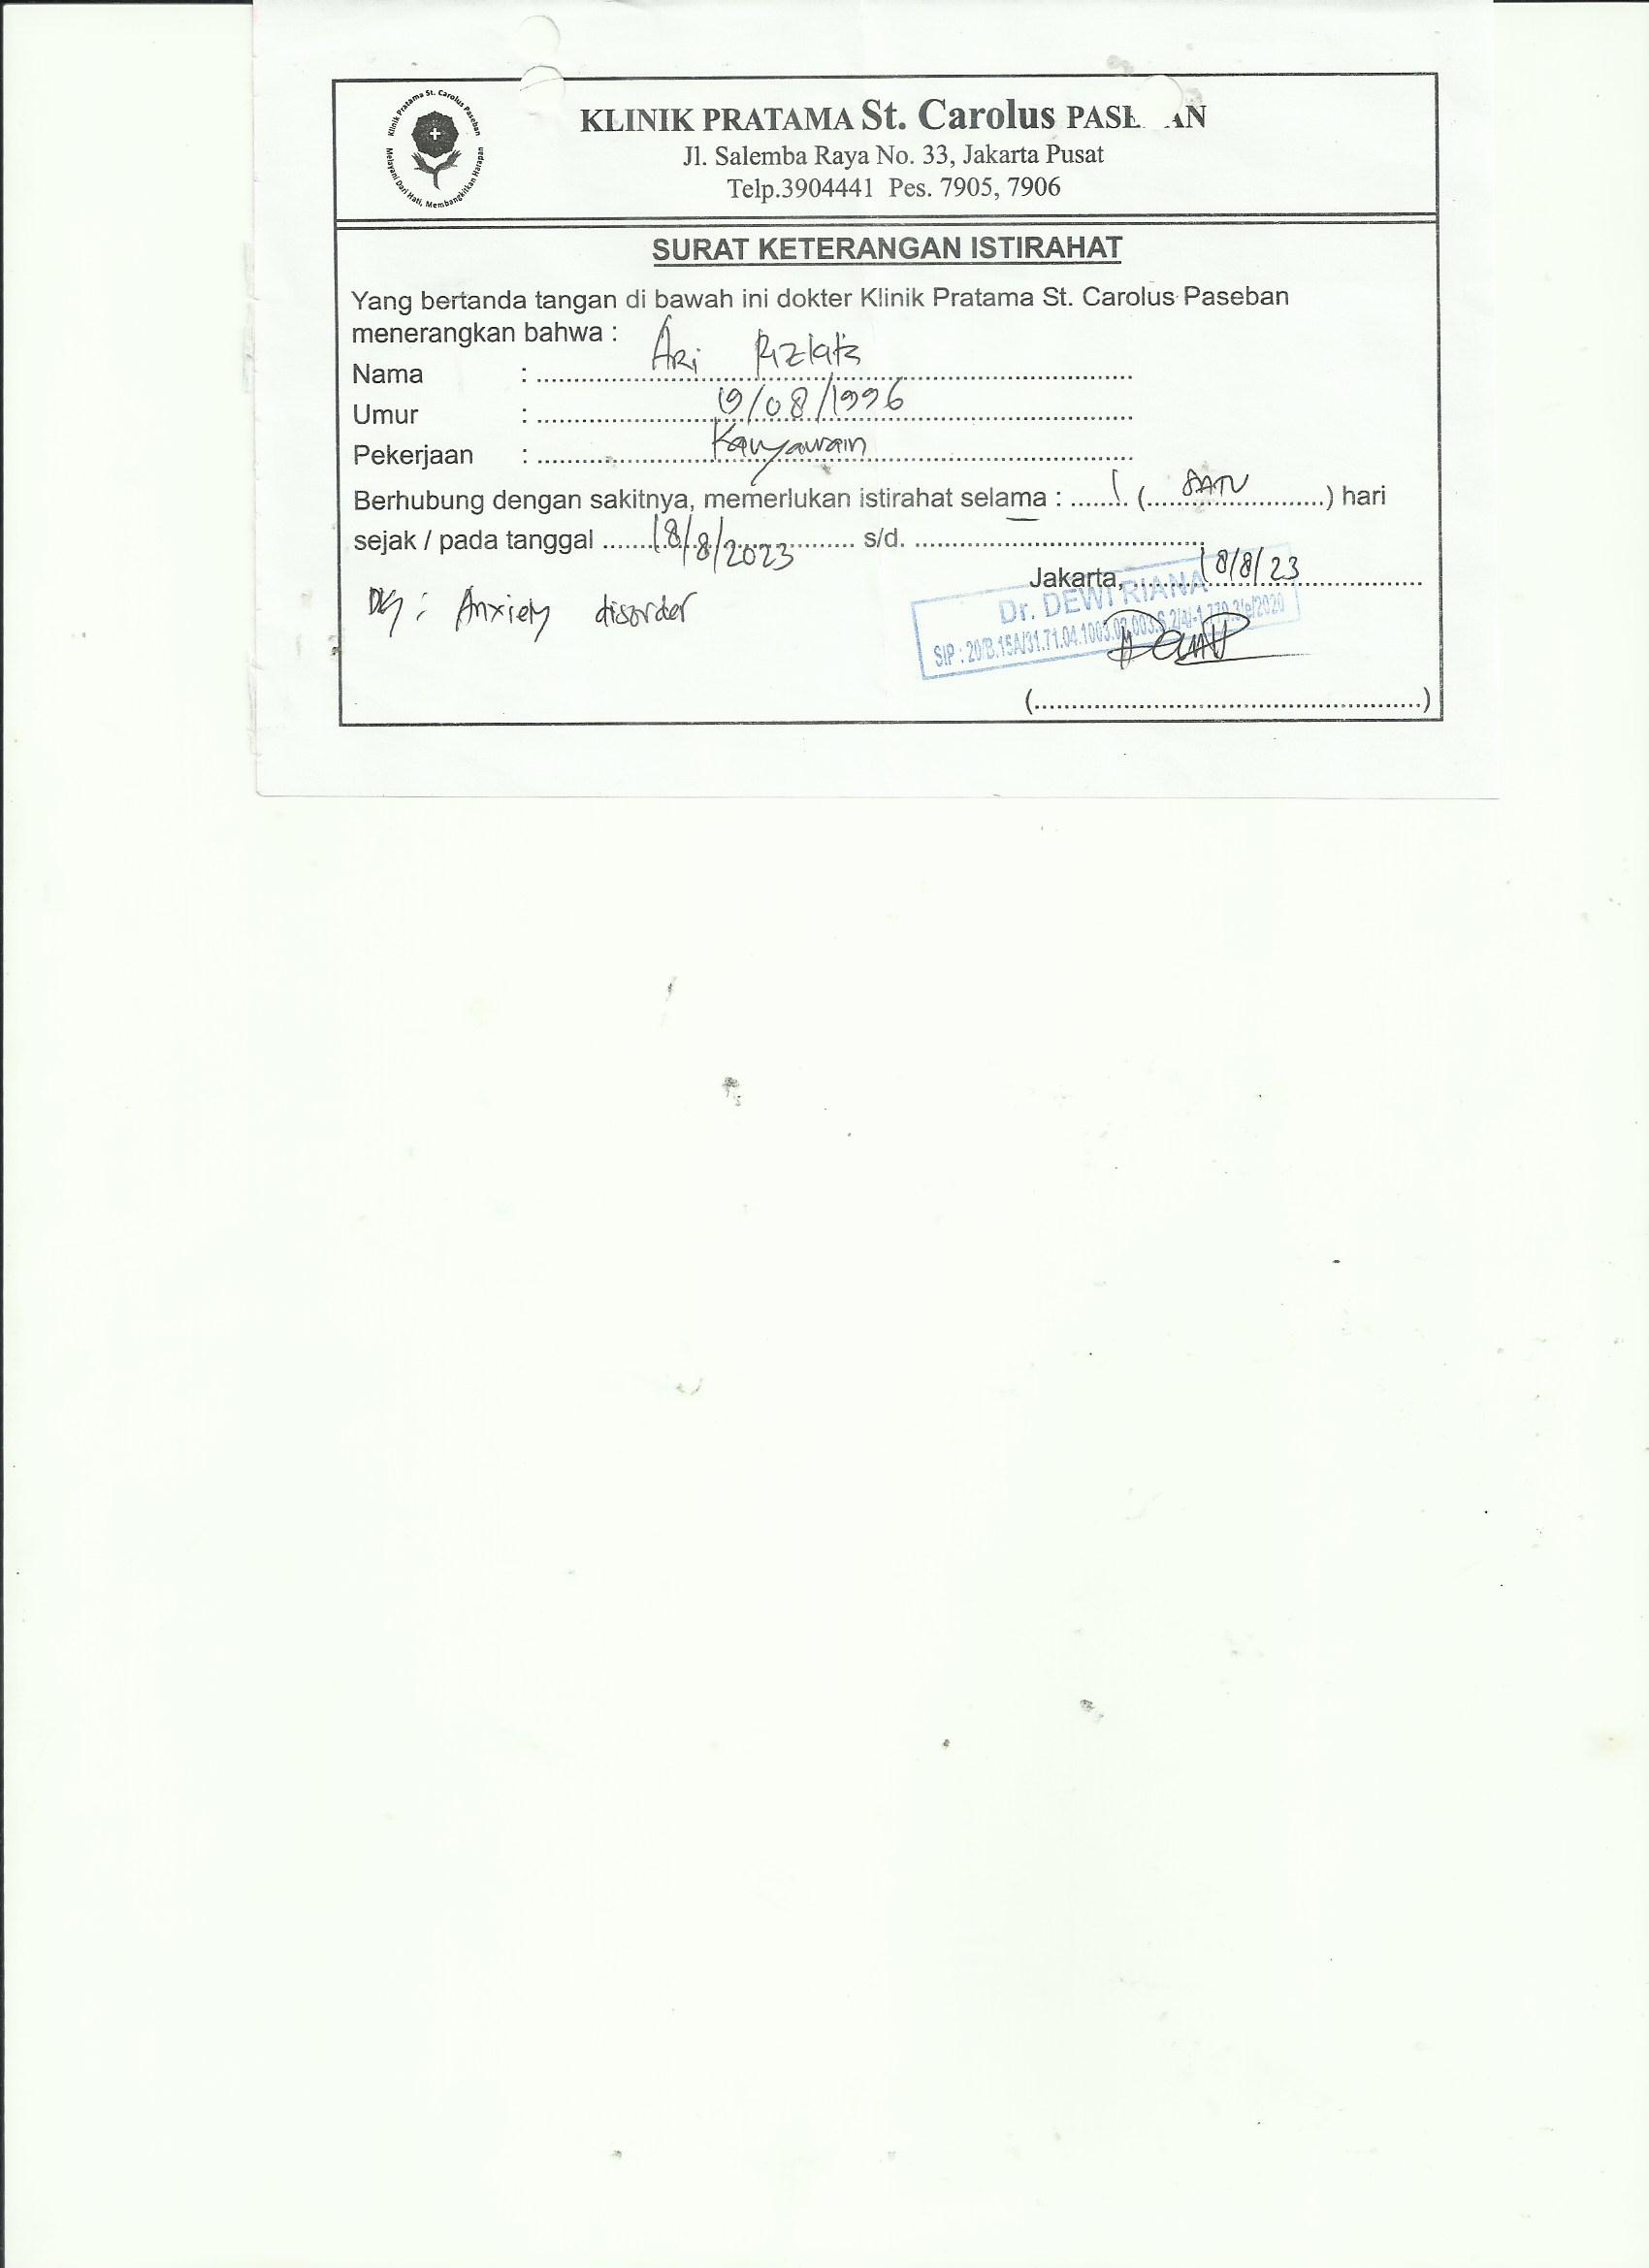 Klinik Pratama St. Carolus Paseban
Melayani Dari Hati, Membangkitkan Harapan
KLINIK PRATAMA St. Carolus
Jl. Salemba Raya No. 33, Jakarta Pusat
Telp.3904441 Pes. 7905, 7906
SURAT KETERANGAN ISTIRAHAT
Yang bertanda tangan di bawah ini dokter Klinik Pratama St. Carolus Paseban
menerangkan bahwa :
Nama : Ari
Umur : 19/08/1996
Pekerjaan : Karyawan
Berhubung dengan sakitnya, memerlukan istirahat selama : 1 (SATU) hari
sejak / pada tanggal 18/8/2023 s/d.
Jakarta, 18/8/23
Dg : Anxiety disorder
Dr. DEWI RIANA
SIP :
(..........)